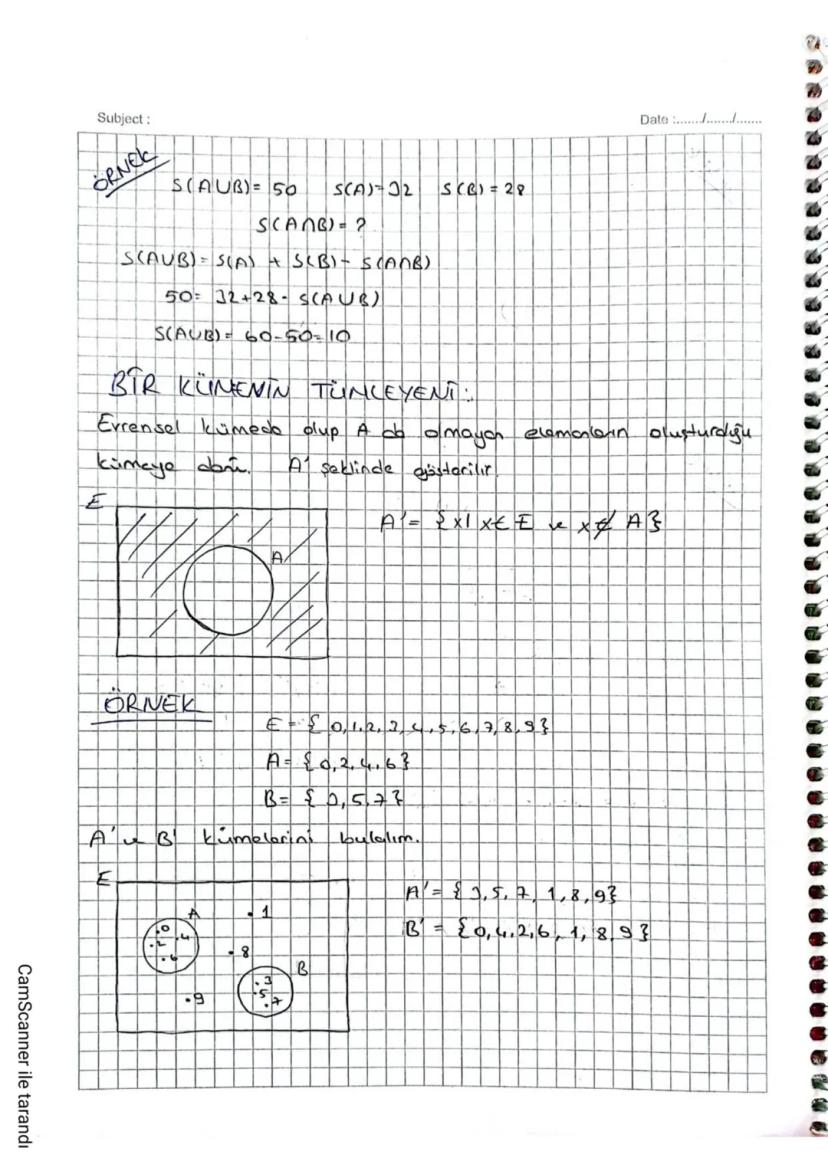 Subject :
Date :......./......./.......
ÖRNEK
S(A∪B) = 50 S(A)=32 S(B) = 28
S(A∩B) = ?
S(A∪B) = S(A) + S(B) - S(A∩B)
50 = 32+28 - S(A∪B)
S(A∪B) = 60-50=10
BİR KÜMENİN TÜMLEYENİ :
Evrensel kümede olup A da olmayan elemanların oluşturduğu
kümeye denir. A' şeklinde gösterilir.
E
A' = {x| x∈E ve x∉A}
A
ÖRNEK
E = {0,1,2,3,4,5,6,7,8,9}
A = {0,2,4,6}
B = {3,5,7}
A' ve B' kümelerini bulalım.
E
A' = {3,5,7,1,8,9}
B' = {0,4,2,6,1,8,9}
A
.1
.0
.2 .4
.6
.8
B
.3
.5
.7
.9
CamScanner ile tarandı